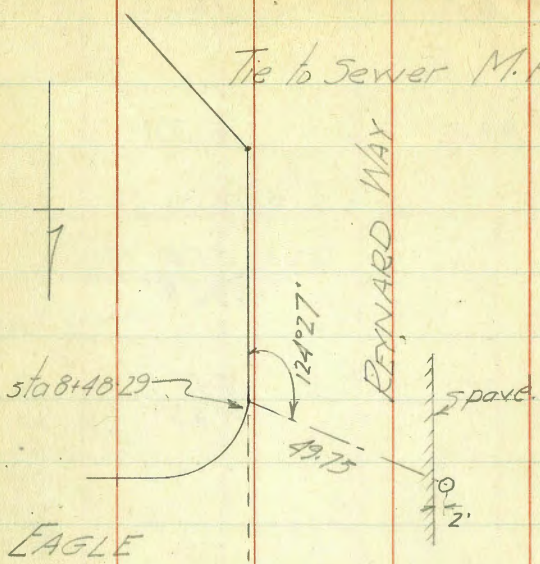 Tie to Sewer M.
REYNARD WAY
124°27'
sta 8+48.29
pave.
49.75
2'
EAGLE